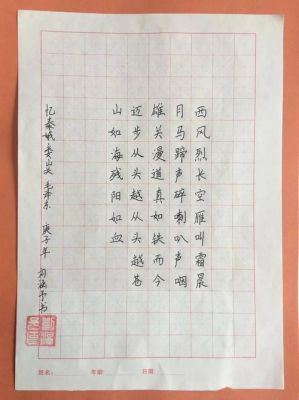 西风烈长空雁叫霜晨
月马蹄声碎喇叭声咽
雄关漫道真如铁而今
迈步从头越从头越苍
山如海残阳如血
忆秦娥娄山关 毛泽东 庚子年 书
姓名: 年龄: 日期: